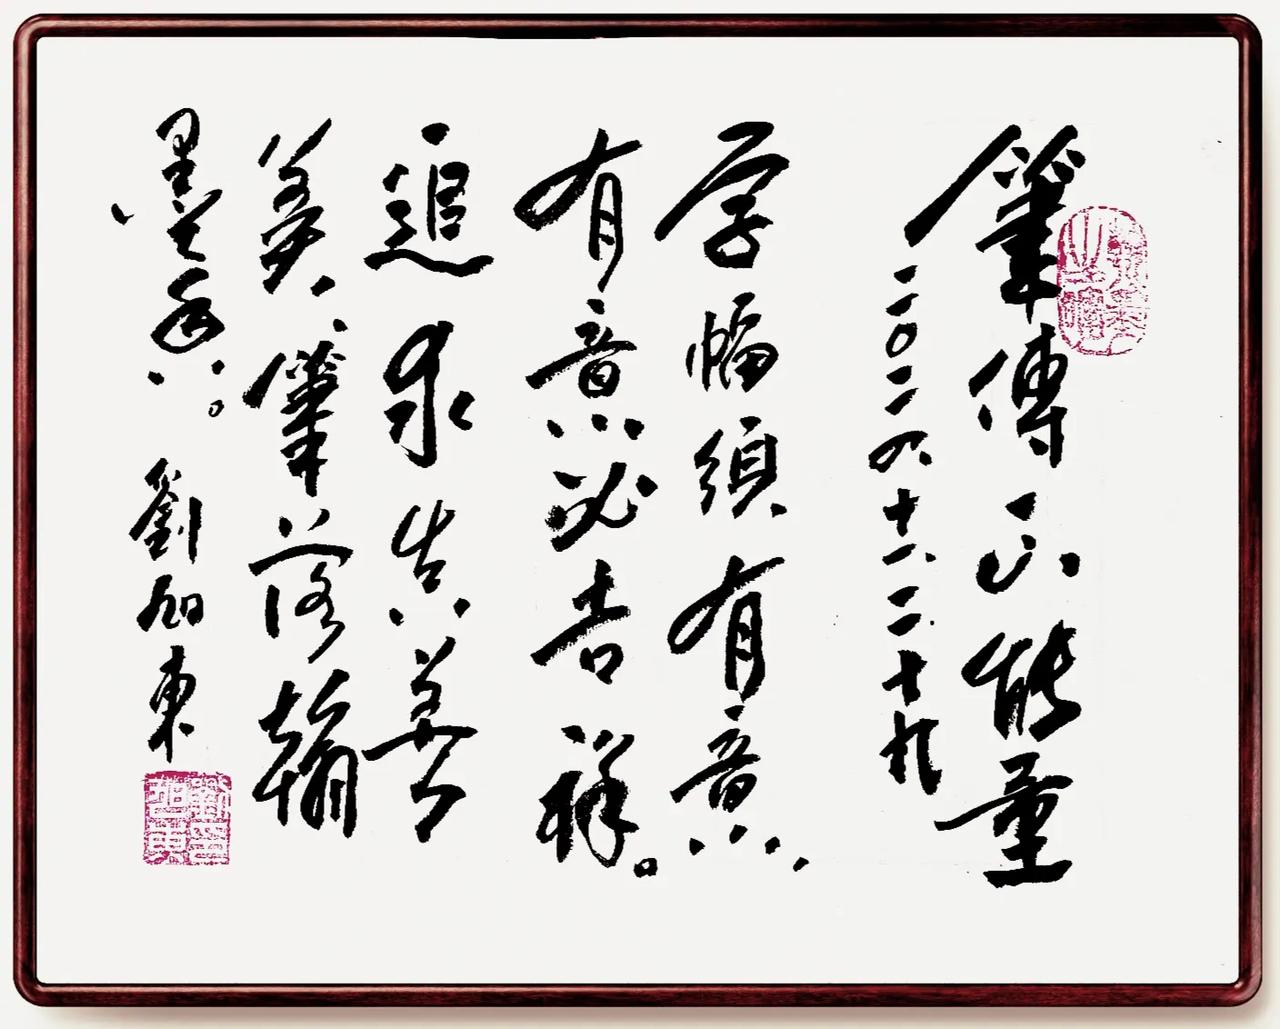 筆傳正能量
二〇二 十一.二十九
字幅須有意
有意必吉祥。
追求真善
美、筆落翰
墨香。劉旭東
劉旭東印